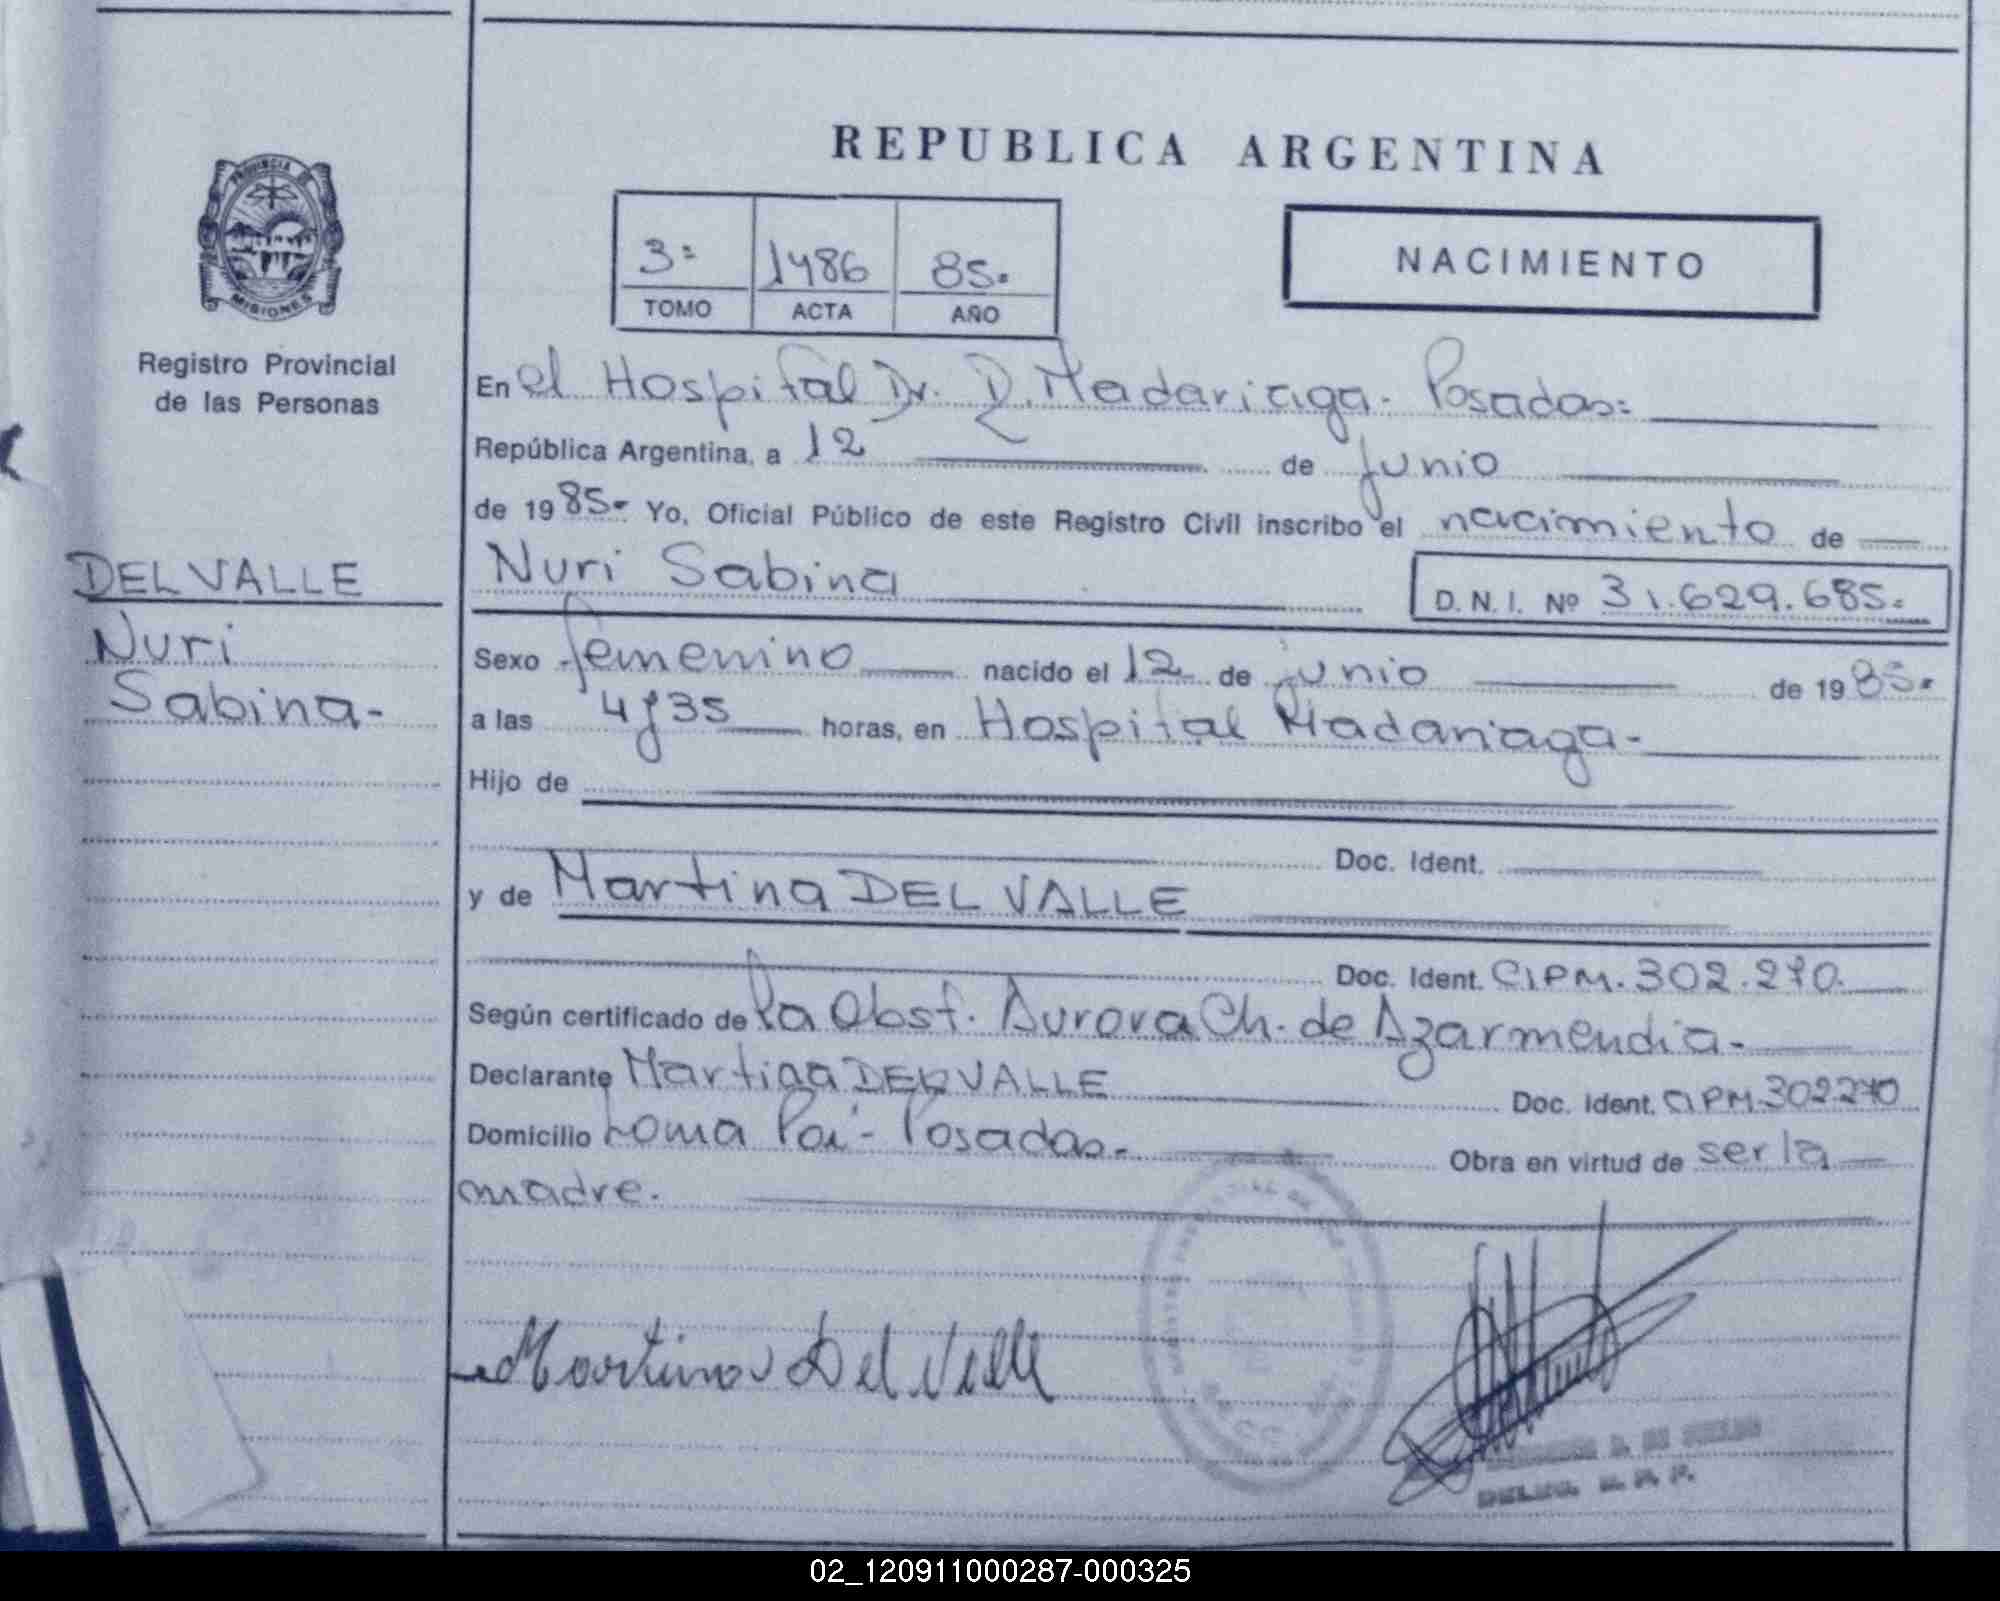 REPUBLICA ARGENTINA
PROVINCIA DE
MISIONES
Registro Provincial
de las Personas
3=
1486
85.
TOMO
ACTA
AÑO
NACIMIENTO
En el Hospital Dr. R. Madariaga - Posadas=
República Argentina, a 12 de junio
de 1985.- Yo, Oficial Público de este Registro Civil inscribo el nacimiento de
DEL VALLE
Nuri
Sabina-
Nuri Sabina
D. N. I. Nº 31.629.685.
Sexo femenino nacido el 12 de junio de 1985.
a las 4 y 35 horas, en Hospital Madariaga-
Hijo de
Doc. Ident.
y de Martina DEL VALLE
Doc. Ident. CIPM. 302.270.
Según certificado de la Obst. Aurora Ch. de Azarmendia-
Declarante Martina DEL VALLE Doc. Ident. CIPM.302270
Domicilio Loma Poi - Posadas- Obra en virtud de ser la
madre.
Martina Del Valle
02_120911000287-000325